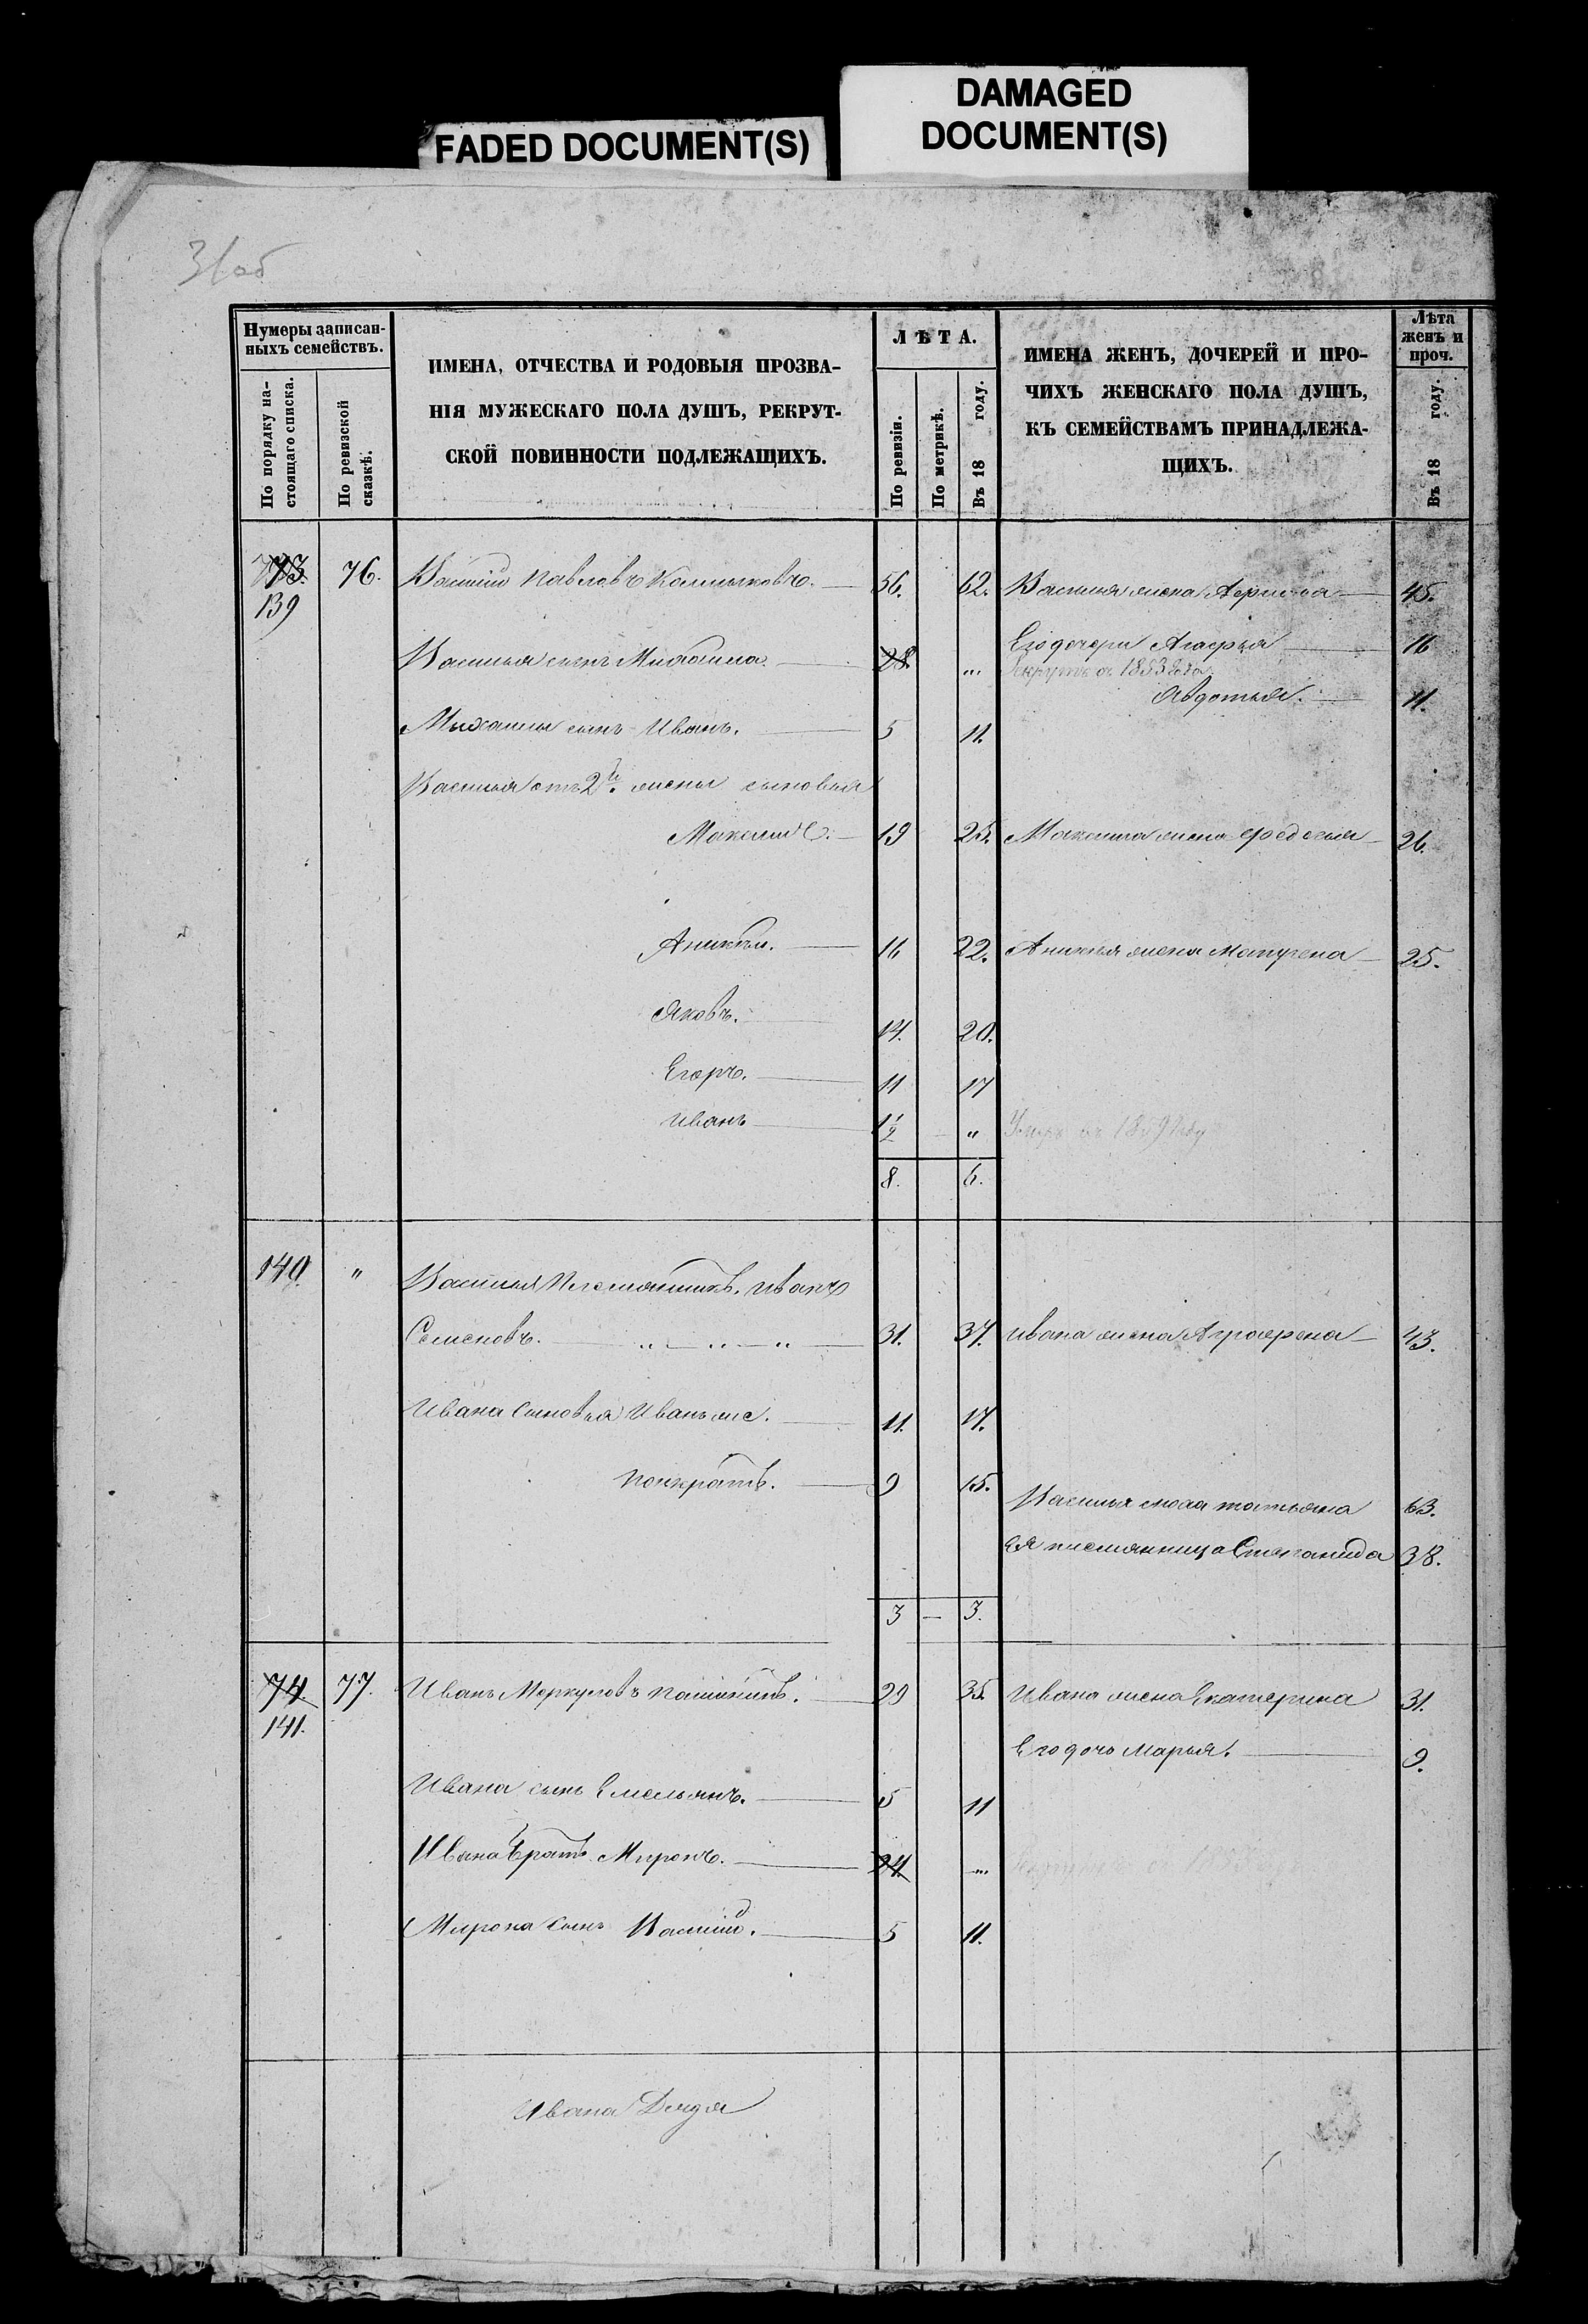 FADED DOCUMENT(S)
DAMAGED
DOCUMENT(S)
31об
Нумеры записан-
ныхъ семействъ.
По порядку на-
стоящаго списка.
По ревизской
сказкѣ.
ИМЕНА, ОТЧЕСТВА И РОДОВЫЯ ПРОЗВА-
НІЯ МУЖЕСКАГО ПОЛА ДУШЪ, РЕКРУТ-
СКОЙ ПОВИННОСТИ ПОДЛЕЖАЩИХЪ.
ЛѢТА.
По ревизіи.
По метрикѣ.
Въ 18 году.
ИМЕНА ЖЕНЪ, ДОЧЕРЕЙ И ПРО-
ЧИХЪ ЖЕНСКАГО ПОЛА ДУШЪ,
КЪ СЕМЕЙСТВАМЪ ПРИНАДЛЕЖА-
ЩИХЪ.
Лѣта
женъ и
проч.
Въ 18 году.
73. 76. Василій Павловъ 56. 62. Василья жена 45.
139
Василья сынъ Михаила 28. ... Его дочери Агафья 16
Рекрутъ съ 1853 года
Авдотья. 11.
Михаилы сынъ Иванъ. 5 11.
Василья отъ 2й. жены сыновья
Максимъ. 19 25. Максима жена Федосья 26.
Аникѣй. 16 22. Аникея жена Матрена 25.
Яковъ. 14. 20.
Егоръ. 11 17
Иванъ 1/2 " Умеръ въ 1859 году
8. 6.
140 " Василья Племянникъ. Иванъ
Семеновъ. 31. 37. Ивана жена Аграфена 43.
Ивана Сыновья Иванъ же. 11. 17.
Панкратъ. 9 15.
Василья сноха Татьяна 63.
Ея племянница Степанида 38.
3 — 3.
74. 77. Иванъ Меркуловъ 29 35. Ивана жена Екатерина 31.
141.
Его дочь Марья. 9.
Ивана сынъ Емельянъ. 5 11
Ивана Братъ Миронъ. 24. ...
Мирона сынъ Василій. 5 11.
Ивана Дядя